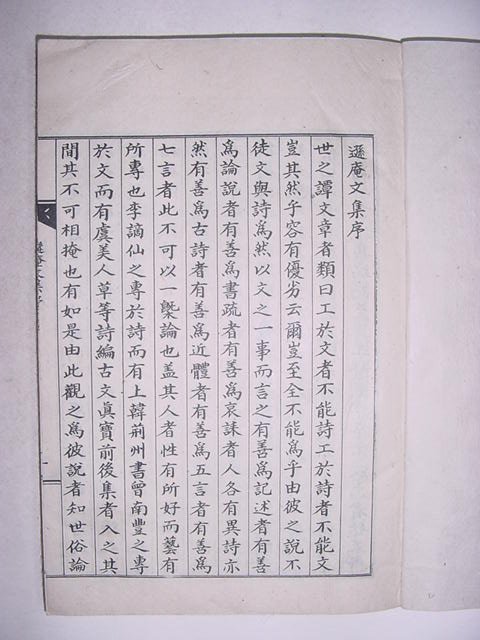 遯庵文集序
世之譚文章者類曰工於文者不能詩工於詩者不能文
豈其然乎容有優劣云爾豈至全不能爲乎由彼之說不
徒文與詩爲然以文之一事而言之有善爲記述者有善
爲論說者有善爲書疏者有善爲哀誄者人各有異詩亦
然有善爲古詩者有善爲近體者有善爲五言者有善爲
七言者此不可以一槩論也盖其人者性有所好而藝有
所專也李謫仙之專於詩而有上韓荊州書曾南豊之專
於文而有虞美人草等詩編古文眞寶前後集者入之其
間其不可相掩也有如是由此觀之爲彼說者知世俗論